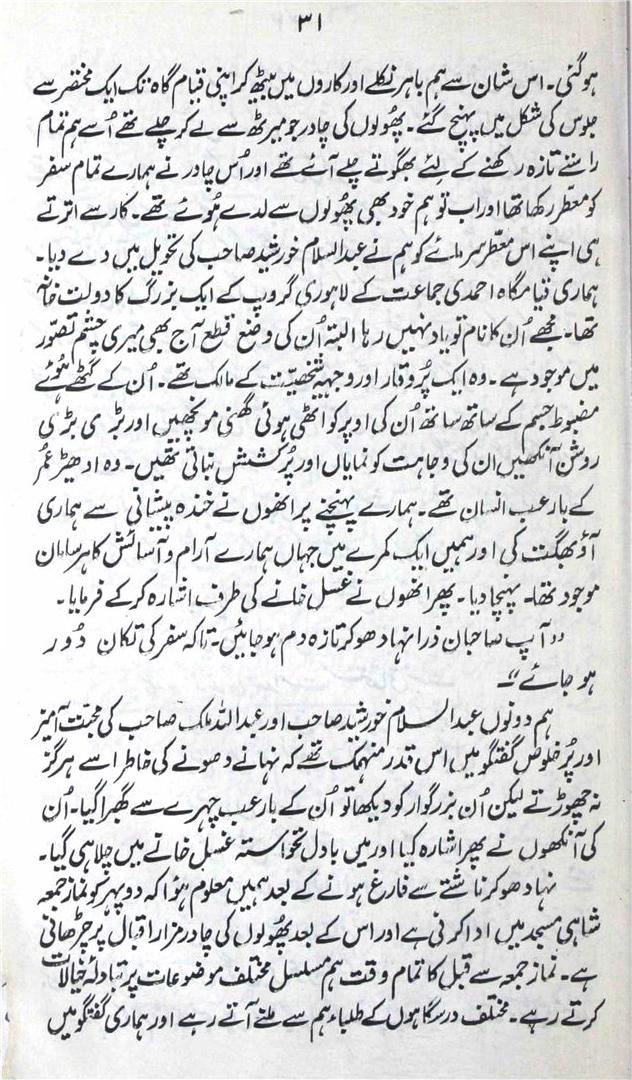 ۳۱
ہوگئی۔ اس شان سے ہم باہر نکلے اور کاروں میں بیٹھ کر اپنی قیام گاہ تک ایک مختصر سے
جلوس کی شکل میں پہنچ گئے۔ پھولوں کی چادر جو میرٹھ سے لے کر چلے تھے اُسے ہم تمام
راستے تازہ رکھنے کے لِئے بھگوتے چلے آئے تھے اور اُس چادر نے ہمارے تمام سفر
کو معطّر رکھا تھا اور اب تو ہم خود بھی پھولوں سے لدے ہُوئے تھے۔ کار سے اترتے
ہی اپنے اس معطّر سرمائے کو ہم نے عبدالسلام خورشید صاحب کی تحویل میں دے دیا۔
ہماری قیام گاہ احمدی جماعت کے لاہوری گروپ کے ایک بزرگ کا دولت خانہ
تھا۔ مجھے اُن کا نام تو یاد نہیں رہا البتہ اُن کی وضع قطع آج بھی میری چشم تصوّر
میں موجود ہے۔ وہ ایک پُر وقار اور وجیہہ شخصیّت کے مالک تھے۔ اُن کے گٹھے ہُوئے
مضبوط جسم کے ساتھ ساتھ اُن کی اوپر کو اٹھی ہوئی گھنی مونچھیں اور بڑی بڑی
روشن آنکھیں ان کی وجاہت کو نمایاں اور پُر کشش بناتی تھیں۔ وہ ادھیڑ عُمر
کے بارعب انسان تھے۔ ہمارے پہنچنے پر انھوں نے خندہ پیشانی سے ہماری
آؤ بھگت کی اور ہمیں ایک کمرے میں جہاں ہمارے آرام و آسائش کا ہر سامان
موجود تھا۔ پہنچا دیا۔ پھر انھوں نے غسل خانے کی طرف اشارہ کر کے فرمایا۔
”آپ صاحبان ذرا نہا دھو کر تازہ دم ہو جائیں۔ تاکہ سفر کی تکان دُور
ہو جائے“۔
ہم دونوں عبدالسلام خورشید صاحب اور عبداللہ ملک صاحب کی محبّت آمیز
اور پُر خلوص گفتگو میں اس قدر منہمک تھے کہ نہانے دھونے کی خاطر اسے ہرگز
نہ چھوڑتے لیکن اُن بزرگوار کو دیکھا تو اُن کے بارعب چہرے سے گھبرا گیا۔ اُن
کی آنکھوں نے پھر اشارہ کیا اور میں بادل نخواستہ غسل خانے میں چلا ہی گیا۔
نہا دھو کر ناشتے سے فارغ ہونے کے بعد ہمیں معلوم ہُوا کہ دوپہر کو نماز جمعہ
شاہی مسجد میں ادا کرنی ہے اور اس کے بعد پھولوں کی چادر مزار اقبال پر چڑھانی
ہے۔ نماز جمعہ سے قبل کا تمام وقت ہم مسلسل مختلف موضوعات پر تبادلۂ خیالات
کرتے رہے۔ مختلف درسگاہوں کے طلباء ہم سے ملنے آتے رہے اور ہماری گفتگو میں